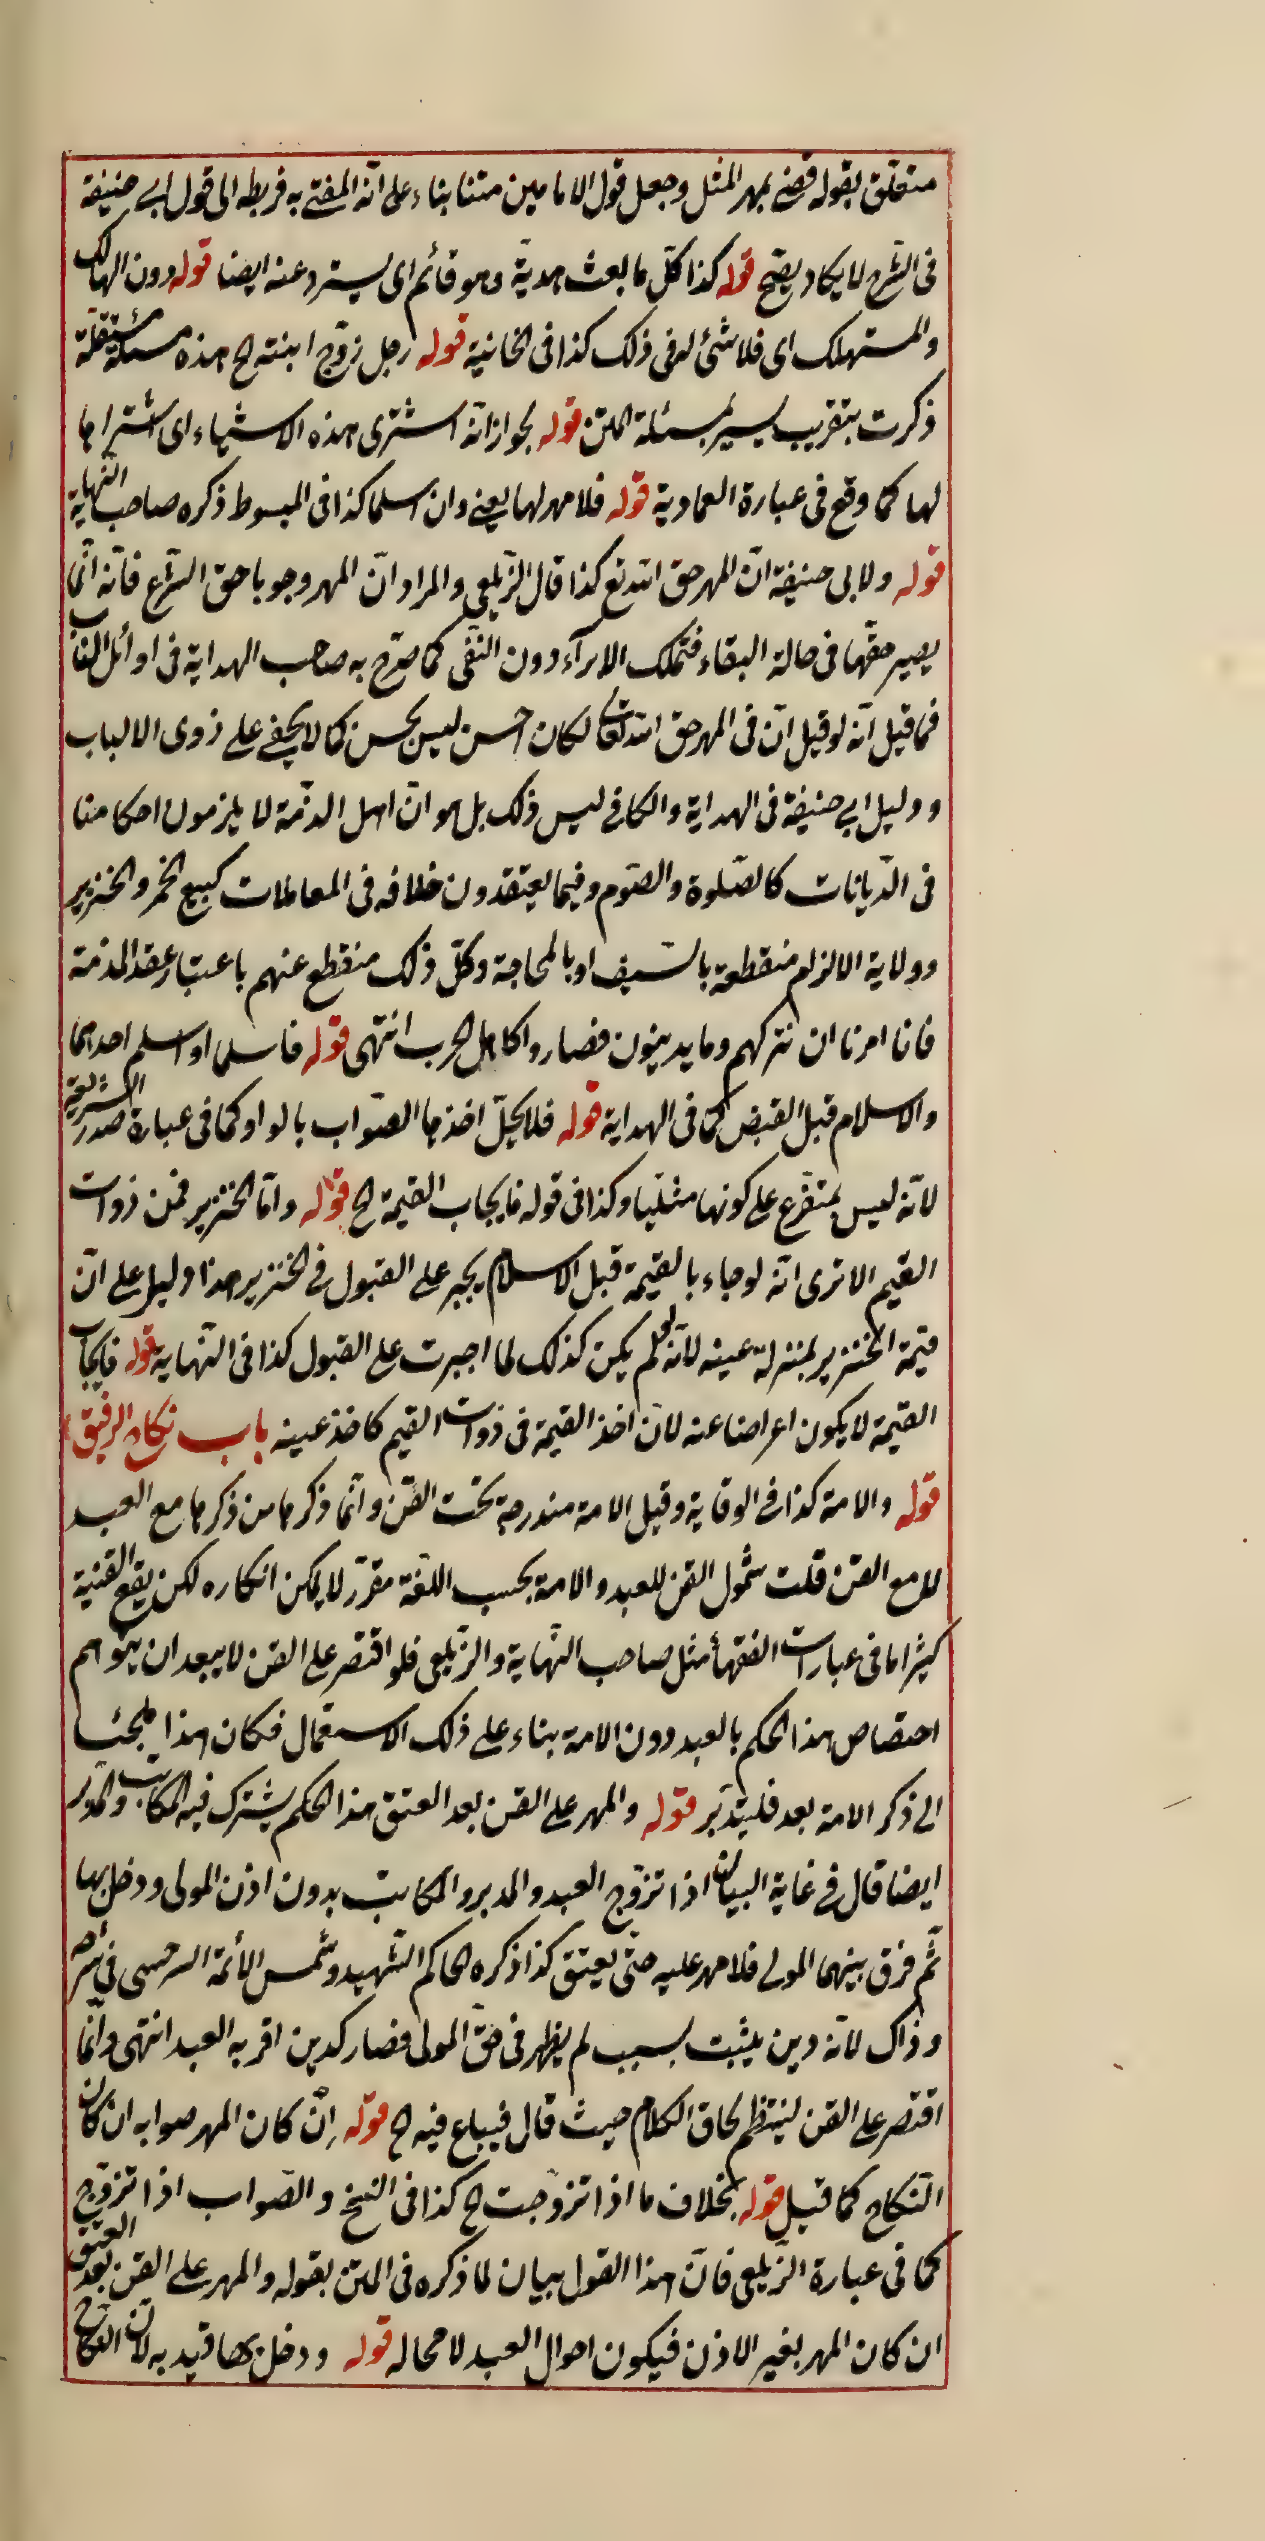 متعلق بقوله قضى بمهر المثل وجعل قول الامامين متنا بناء على انه المفتى به فربطه الى قول ابى حنيفة
فى الشرح لا يكاد يصح قوله كذا كل ما بعث هدية وهو قائم اى يسترد عنه ايضا قوله دون الهالك
والمستهلك اى فلا شئ له فى ذلك كذا فى الخانية قوله رجل زوج ابنته الخ هذه مسئلة مستقلة
ذكرت بتقريب يسير بمسئلة المتن قوله لجواز انه اشترى هذه الاشياء اى اشتراها
لها كما وقع فى عبارة العمادية قوله فلا مهر لها يعنى وان اسلما كذا فى المبسوط ذكره صاحب النهاية
قوله ولابى حنيفة ان المهر حق الله تع كذا قال الزيلعى والمراد ان المهر وجوبا حق الشرع فانه انما
يصير حقها فى حالة البقاء فتملك الابرآء دون النفى كما صرح به صاحب الهداية فى اوائل الباب
فما قيل انه لو قيل ان فى المهر حق الله تعالى لكان احسن ليس بحسن كما لا يخفى على ذوى الالباب
ودليل ابى حنيفة فى الهداية والكافى ليس ذلك بل هو ان اهل الذمة لا يلزمون احكامنا
فى الديانات كالصلوة والصوم وفيما يعتقدون خلافه فى المعاملات كبيع الخمر والخنزير
وولاية الالزام منقطعة بالسيف او بالمحاجة وكل ذلك منقطع عنهم باعتبار عقد الذمة
فانا امرنا ان نتركهم وما يدينون فصاروا كاهل الحرب انتهى قوله فاسلما او اسلم احدهما
والاسلام قبل القبض كما فى الهداية قوله فلا يحل اخذها الصواب بالواو كما فى عبارة صدر الشريعة
لانه ليس بمتفرع على كونها مثليا وكذا فى قوله فايجاب القيمة الخ قوله واما الخنزير فمن ذوات
القيم الا ترى انه لو جاء بالقيمة قبل الاسلام يجبر على القبول فى الخنزير هذا دليل على ان
قيمة الخنزير بمنزلة عينه لانه لو لم يكن كذلك لما اجبرت على القبول كذا فى النهاية قوله فايجاب
القيمة لا يكون اعراضا عنه لان اخذ القيمة فى ذوات القيم كاخذ عينه باب نكاح الرقيق
قوله والامة كذا فى الوقاية وقيل الامة مندرجة تحت القن وانما ذكرها من ذكرها مع العبد
لا مع القن قلت شمول القن للعبد والامة بحسب اللغة مقرر لا يمكن انكاره لكن يقع القنية
كثيرا ما فى عبارات الفقهأ مثل صاحب النهاية والزيلعى فلو اقتصر على القن لا يبعد ان يتوهم
اختصاص هذا الحكم بالعبد دون الامة بناء على ذلك الاستعمال فكان هذا ملجئا
الى ذكر الامة بعد فليتدبر قوله والمهر على القن بعد العتق هذا الحكم يشترك فيه المكاتب والمدبر
ايضا قال فى غاية البيان اذا تزوج العبد والمدبر والمكاتب بدون اذن المولى ودخل بها
ثم فرق بينهما المولى فلا مهر عليه حتى يعتق كذا ذكره الحاكم الشهيد وشمس الأئمة السرخسى فى شرحه
وذاك لانه دين يثبت بسبب لم يظهر فى حق المولى فصار كدين اقر به العبد انتهى وانما
اقتصر على القن لينتظم لحاق الكلام حيث قال فيباع فيه الخ قوله اِن كان المهر صوابه ان كان
النكاح كما قبل قوله بخلاف ما اذا تزوجت الخ كذا فى النسخ والصواب اذا تزوج
كما فى عبارة الزيلعى فان هذا القول بيان لما ذكره فى المتن بقوله والمهر على القن بعد العتق
ان كان المهر بغير الاذن فيكون احوال العبد لا محاله قوله ودخل بها قيد به لان النكاح